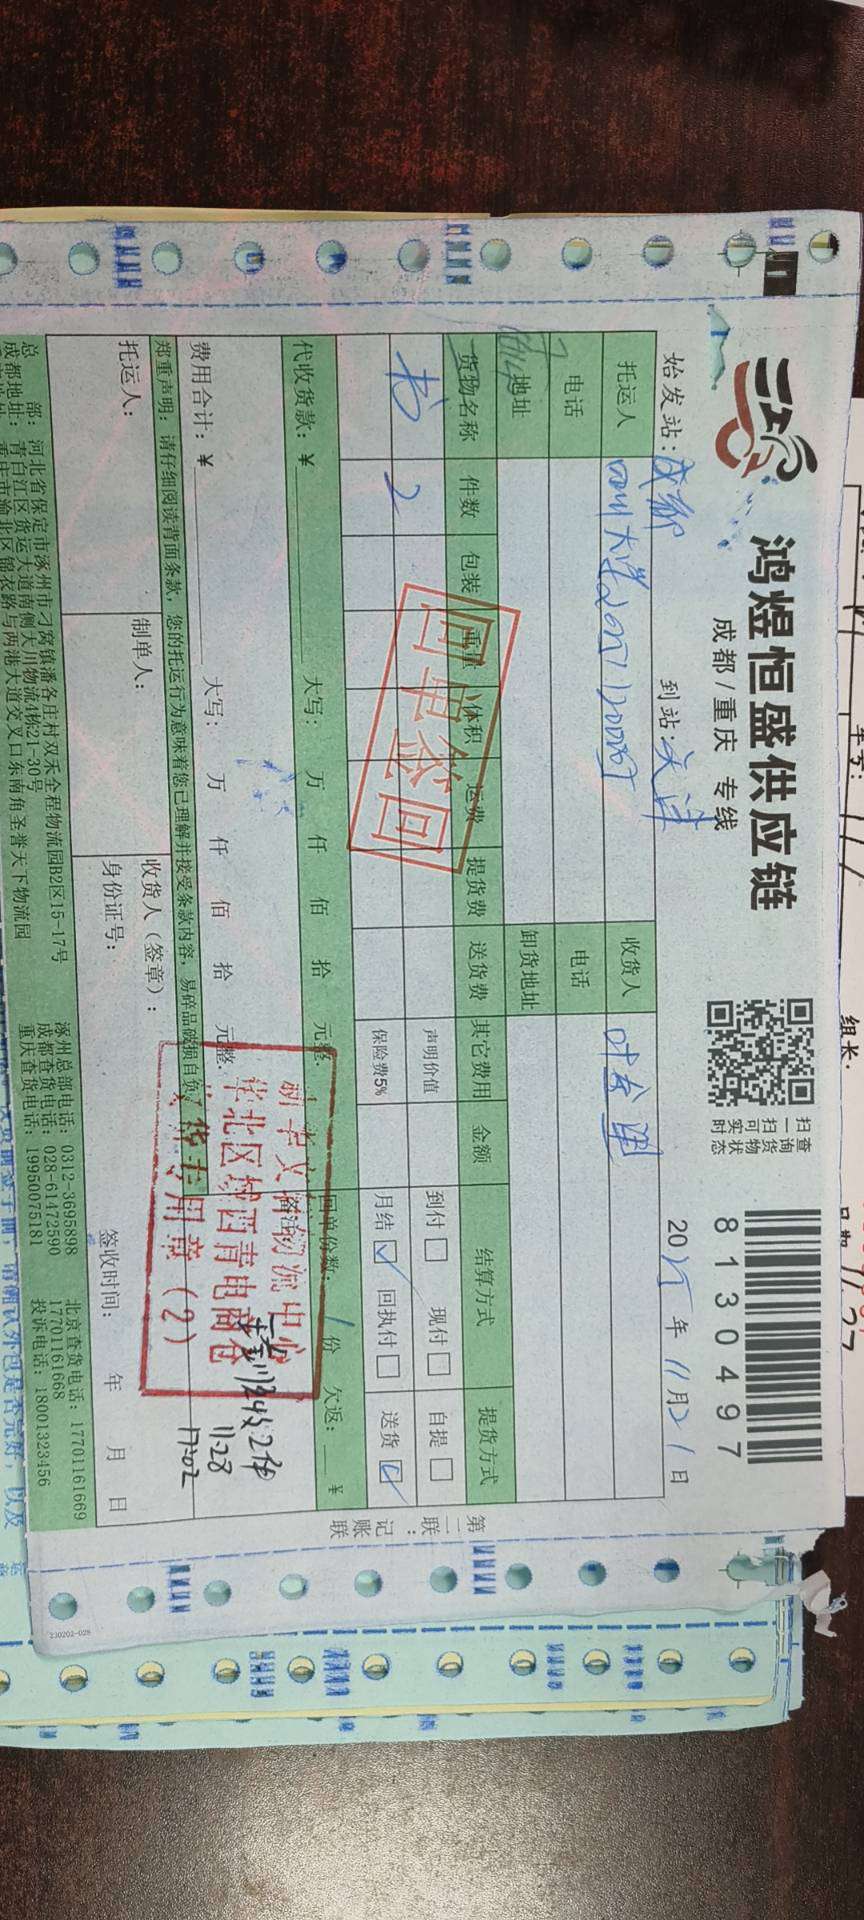 鸿煜恒盛供应链
成都/重庆 专线
扫一扫可实时
查询货物状态
81304977
始发站：成都
到站：天津
2025年11月21日
托运人
收货人
电话
电话
地址
卸货地址
货物名称 件数 包装 重量 体积 运费 提货费 送货费 其它费用 金额 结算方式 提货方式
书 2
声明价值
到付 现付 自提
保险费5%
月结 回执付 送货
回单签回
代收货款：¥ 大写： 万 仟 佰 拾 元整.
回单份数：1份 欠返： ¥
费用合计：¥ 大写： 万 仟 佰 拾 元整.
备注
新华文轩物流中心
华北区域西青电商仓
收货专用章（2）
2件
11.28
17:02
郑重声明：请仔细阅读背面条款，您的托运行为意味着您已理解并接受条款内容，易碎品破损自负
托运人：
制单人：
收货人（签章）：
身份证号：
签收时间： 年 月 日
总 部：河北省保定市涿州市刁窝镇潘各庄村双禾全程物流园B2区15-17号
成都地址：青白江区货运大道南侧天川物流4栋21-30号
重庆市渝北区锦衣路与两港大道交叉口东南角圣誉天下物流园
涿州总部电话：0312-3695898
成都查货电话：028-61472590
重庆查货电话：19950075181
北京查货电话：17701161669
17701161668
投诉电话：18001323456
第二联：记账联
230202-028
组长.